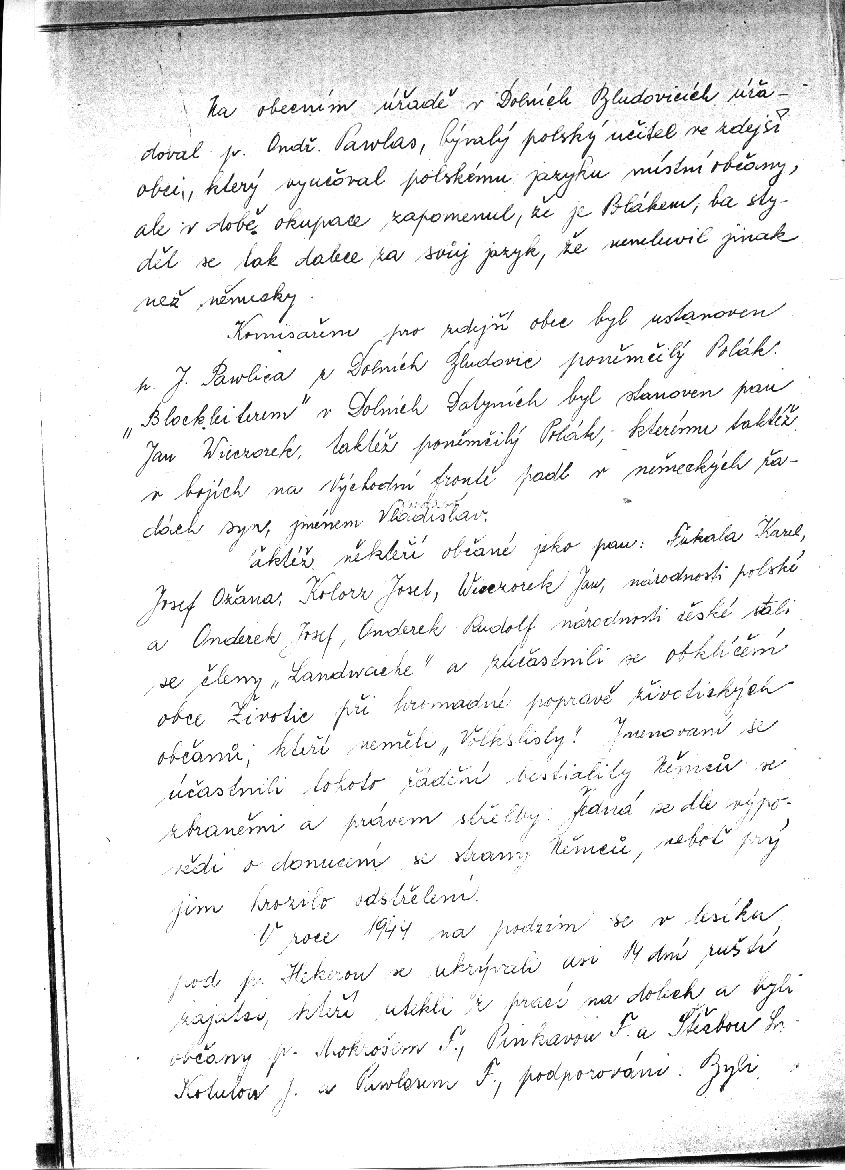 Na obecním úřadě v Dolních Bludovicích úřa-
doval p. Ondř. Pawlas, bývalý polský učitel ve zdejší
obci, který vyučoval polskému jazyku místní občany,
ale v době okupace zapomenul, že je Polákem, ba sty-
děl se tak dalece za svůj jazyk, že nemluvil jinak
než německy.
Komisařem pro zdejší obec byl ustanoven
p. J. Pawlica z Dolních Bludovic poněmčilý Polák.
„Blockleiterem" v Dolních Datyních byl stanoven pan
Jan Wieczorek, taktéž poněmčilý Polák, kterému taktéž
v bojích na Východní frontě padl v německých řa-
dách syn, jménem Vladislav.
aktéž někteří občané jako pan: Fukala Karel,
Josef Ožana, Kolorz Josef, Wieczorek Jan, národnosti polské
a Onderek Josef, Onderek Rudolf národnosti české stali
se členy „Landwache" a zúčastnili se obklíčení
obce Životic při hromadné popravě životických
občanů, kteří neměli „Volkslisty! Jmenovaní se
účastnili tohoto řádění bestiality Němců se
zbraněmi a právem střelby. Jedná se dle výpo-
vědi o donucení se strany Němců, neboť prý
jim hrozilo odstřelení.
V roce 1944 na podzim se v lesíku
pod p. Hekerou se ukrývali asi 14 dní ruští
zajatci, kteří utekli z prací na dolech a byli
občany p. Mokrošem F., Pinkavou F. a Štěrbou
Kotulou J. a Pawlasem F., podporováni. Byli